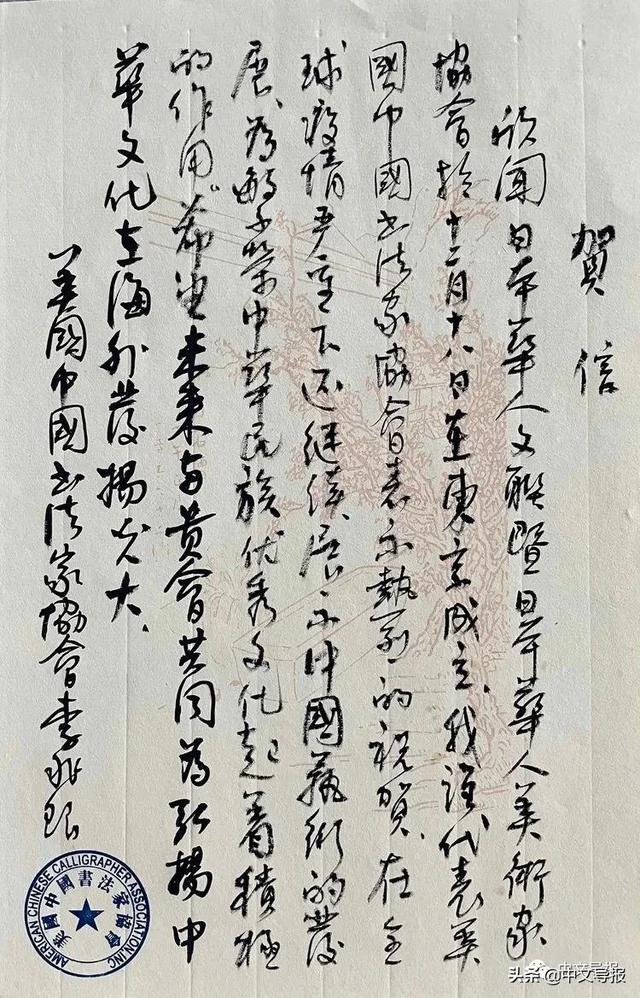 賀信
欣聞日本華人文聯暨日本華人美術家
協會於十二月十八日在東京成立、我謹代表美
國中國书法家協會表示熱烈的祝賀、在全
球疫情严重下还继续展示中國藝術的發
展、為 中華民族优秀文化起着積極
的作用。希望未来与貴會共同為弘揚中
華文化在海外發揚光大、
美國中國书法家協會李兆銀
AMERICAN CHINESE CALLIGRAPHER ASSOCIATION INC
美國中國書法家協會
中文导报
头条@中文导报